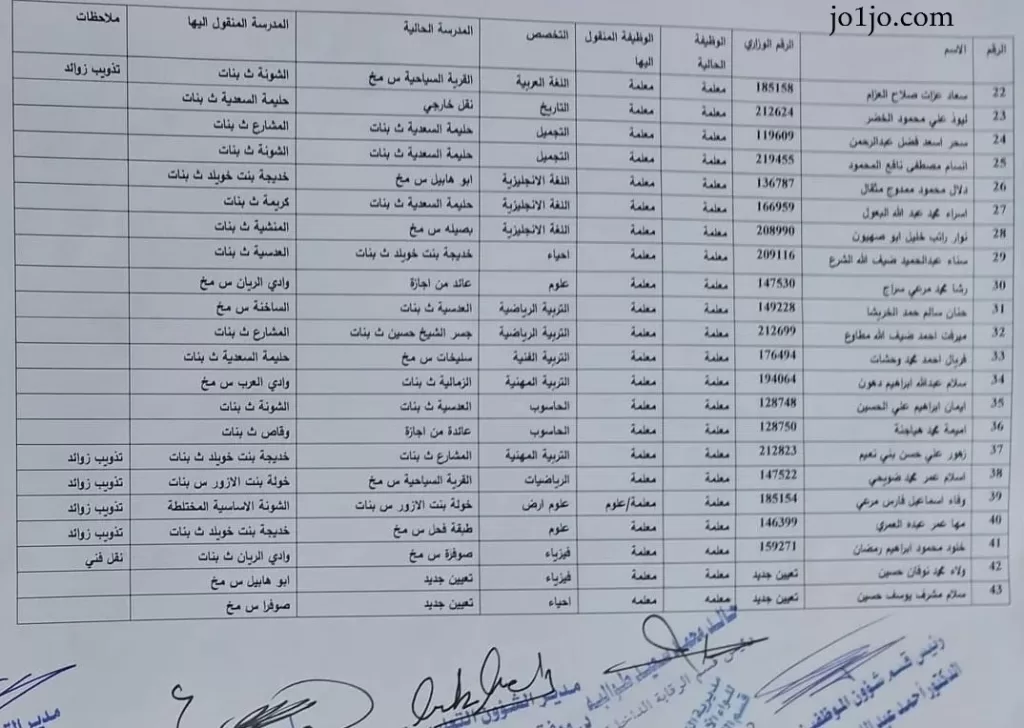 jo1jo.com
الرقم الاسم الرقم الوزاري الوظيفة الحالية الوظيفة المنقول اليها التخصص المدرسة الحالية المدرسة المنقول اليها ملاحظات
22 سعاد عزات صلاح العزام 185158 معلمة معلمة اللغة العربية القرية السياحية س مخ الشونة ث بنات تذويب زوائد
23 ليوذ علي محمود الخضر 212624 معلمة معلمة التاريخ نقل خارجي حليمة السعدية ث بنات
24 سحر اسعد فضل عبدالرحمن 119609 معلمة معلمة التجميل حليمة السعدية ث بنات المشارع ث بنات
25 انسام مصطفى نافع المحمود 219455 معلمة معلمة التجميل حليمة السعدية ث بنات الشونة ث بنات
26 دلال محمود ممدوح مثقال 136787 معلمة معلمة اللغة الانجليزية ابو هابيل س مخ خديجة بنت خويلد ث بنات
27 اسراء محمد عبد الله البعول 166959 معلمة معلمة اللغة الانجليزية حليمة السعدية ث بنات كريمة ث بنات
28 نوار راتب خليل ابو صهيون 208990 معلمة معلمة اللغة الانجليزية بصيله س مخ المنشية ث بنات
29 سناء عبدالحميد ضيف الله الشرع 209116 معلمة معلمة احياء خديجة بنت خويلد ث بنات العدسية ث بنات
30 رشا محمد مرعي سراج 147530 معلمة معلمة علوم عائد من اجازة وادي الريان س مخ
31 حنان سالم حمد الخريشا 149228 معلمة معلمة التربية الرياضية العدسية ث بنات الساخنة س مخ
32 ميرفت احمد ضيف الله مطاوع 212699 معلمة معلمة التربية الرياضية جسر الشيخ حسين ث بنات المشارع ث بنات
33 فريال احمد محمد وحشات 176494 معلمة معلمة التربية الفنية سليخات س مخ حليمة السعدية ث بنات
34 سلام عبدالله ابراهيم دهون 194064 معلمة معلمة التربية المهنية الزمالية ث بنات وادي العرب س مخ
35 ايمان ابراهيم علي الحسين 128748 معلمة معلمة الحاسوب العدسية ث بنات الشونة ث بنات
36 اميمة محمد هياجنة 128750 معلمة معلمة الحاسوب عائدة من اجازة وقاص ث بنات
37 زهور علي حسن بني نعيم 212823 معلمة معلمة التربية المهنية المشارع ث بنات خديجة بنت خويلد ث بنات تذويب زوائد
38 اسلام عمر محمد ضويحي 147522 معلمة معلمة الرياضيات القرية السياحية س مخ خولة بنت الازور س بنات تذويب زوائد
39 وفاء اسماعيل فارس مرعي 185154 معلمة معلمة/علوم علوم ارض خولة بنت الازور س بنات الشونة الاساسية المختلطة تذويب زوائد
40 مها عمر عبده العمري 146399 معلمة معلمة علوم طبقة فحل س مخ خديجة بنت خويلد ث بنات تذويب زوائد
41 خلود محمود ابراهيم رمضان 159271 معلمه معلمة فيزياء صوفرة س مخ وادي الريان ث بنات نقل فني
42 ولاء محمد نوفان حسين تعيين جديد معلمة معلمة فيزياء تعيين جديد ابو هابيل س مخ
43 سلام مشرف يوسف حسين تعيين جديد معلمه معلمه احياء تعيين جديد صوفرا س مخ
رئيس قسم شؤون الموظفين
الدكتور أحمد
رئيس قسم الرقابة الداخلية
مدير الشؤون